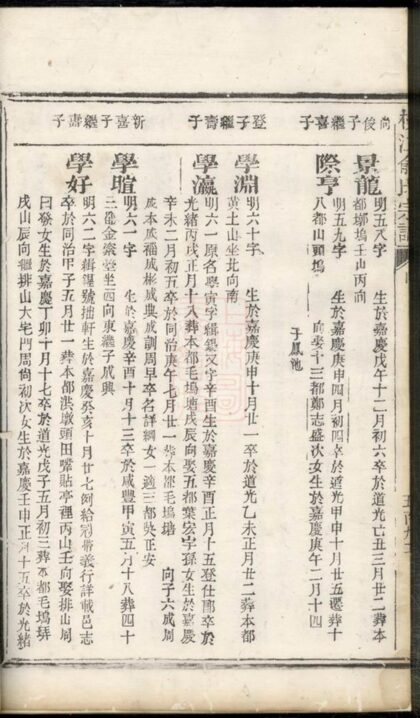 尚俊子繼喜子
景龍
明五八字 生於嘉慶戊午十二月初六卒於道光己丑三月廿一葬本
都塚塢壬山丙向
際亨
明五九字 生於嘉慶庚申四月初四卒於道光甲申十月廿五遷葬十
八都山頭塢 向娶十三都鄭志盛次女生於嘉慶庚午二月十四
子鳳池
登子繼壽子
學淵
明六十字 生於嘉慶庚申十月廿一卒於道光乙未正月廿二葬本都
黃土山坐北向南
學瀛
明六一原名學寅字緝 又字辛酉生於嘉慶辛酉正月十五登仕郎卒於
光緒丙戌正月十八葬本都毛塢塘戌辰向娶五都葉宏宇孫女生於嘉慶
辛未二月初五卒於同治庚午七月廿一葬本都毛塢塘 向子六成周
成本成福成彬成典成訓周早卒名詳綱女一適三都吳正安
新喜子繼壽子
學壇
明六一字 生於嘉慶辛酉十月十三卒於咸豐甲寅五月十八葬四十
三 金 堂坐西向東繼子成興
學好
明六二字緝 號拙軒生於嘉慶癸亥十月廿七例給冠帶義行詳載邑志
卒於同治甲子五月廿一葬本都洪墩頭田 貼亭裡丙山壬向娶排山周
日發女生於嘉慶丁卯十月十七卒於道光戊子五月初三葬本都毛塢
戌山辰向繼排山大宅門周尚初次女生於嘉慶壬申正月十五卒於光緒